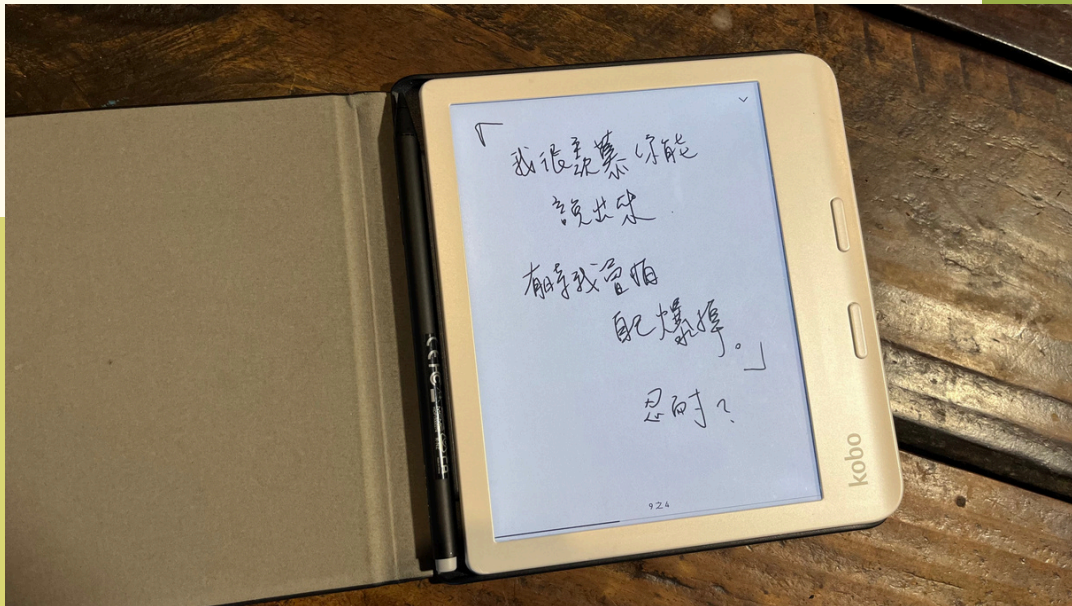 「我很羨慕你能
說出來
有時我會怕
自己爆掉。」
忍耐?
924
kobo